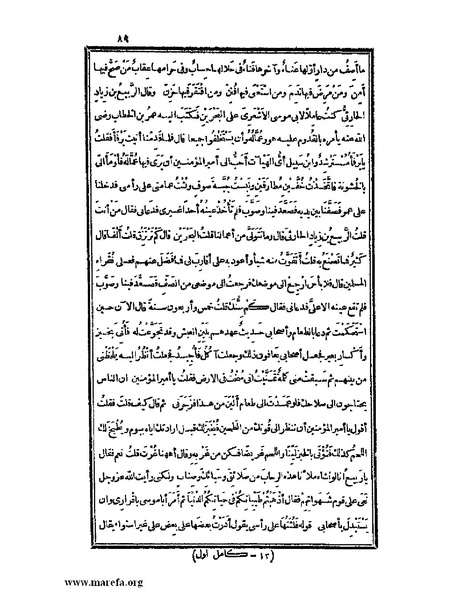 ٨٩
ما أصف من دار أولها عناء وآخرها فناء في حلالها حساب وفي حرامها عقاب من صح فيها
أمن ومن مرض فيها ندم ومن استغنى فيها فتن ومن افتقر فيها حزن وقال الربيع بن زياد
الحارثي كنت عاملا لأبي موسى الأشعري على البحرين فكتب اليه عمر بن الخطاب رضي
الله عنه يأمره بالقدوم عليه هو وعماله وأن يستخلفوا جميعا قال فلما قدمنا أتيت يرفأ فقلت
يا يرفأ مسترشد وابن سبيل أي الهيآت أحب الى أمير المؤمنين أن يرى فيها عماله فأومأ الى
بالخشونة فاتخذت خفين مطارقين ولبست جبة صوف ولثت عمامتي على رأسي فدخلنا
على عمر فصفنا بين يديه فصعد فينا وصوب فلم تأخذ عينه أحدا غيري فدعاني فقال من أنت
قلت الربيع بن زياد الحارثي قال وما تتولى من أعمالنا قلت البحرين قال كم ترتزق قلت ألفا قال
كثير فما تصنع به قلت أتقوت منه شيأ وأعود به على أقارب لي فما فضل عنهم فعلى فقراء
المسلمين قال فلا بأس ارجع الى موضعك فرجعت الى موضعي من الصف فصعد فينا وصوب
فلم تقع عينه الا على فدعاني فقال كم سنك قلت خمس وأربعون سنة قال الآن حين
استحكمت ثم دعا بالطعام وأصحابي حديث عهدهم بلين العيش وقد تجوعت له فأتى بخبز
وأكسار بعير فجعل أصحابي يعافون ذلك وجعلت آكل فأجيد فجعلت أنظر اليه يلحظني
من بينهم ثم سبقت مني كلمة تمنيت أني سخت في الارض فقلت يا أمير المؤمنين ان الناس
يحتاجون الى صلاحك فلو عمدت الى طعام ألين من هذا فزجرني ثم قال كيف قلت فقلت
أقول يا أمير المؤمنين أن تنظر الى قوتك من الطحين فيخبز لك قبل ارادتك اياه بيوم ويطبخ لك
اللحم كذلك فتؤتى بالخبز لينا واللحم غريضا فسكن من غربه وقال أههنا غرت قلت نعم فقال
يا ربيع انا لو نشاء ملأنا هذه الرحاب من صلائق وسبائك وصناب ولكني رأيت الله عز وجل
نعى على قوم شهواتهم فقال أذهبتم طيباتكم في حياتكم الدنيا ثم أمر أبا موسى باقراري وأن
يستبدل بأصحابي قوله فلثتها على رأسي يقول أدرت بعضها على بعض على غير استواء يقال
(١٢ - كامل اول)
www.marefa.org